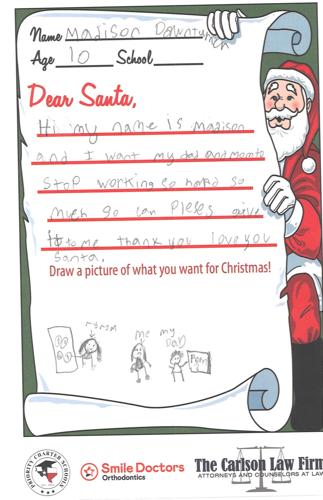 Name Madison
Age 10 School
Dear Santa,
Hi my name is Madison
and I want my dad and mom to
stop working so hard so
much so can Pleles give
it to me thank you love you
Santa.
Draw a picture of what you want for Christmas!
mom
me
my
DaD
PRIORITY CHARTER SCHOOLS
Smile Doctors
Orthodontics
The Carlson Law Firm
ATTORNEYS AND COUNSELORS AT LAW